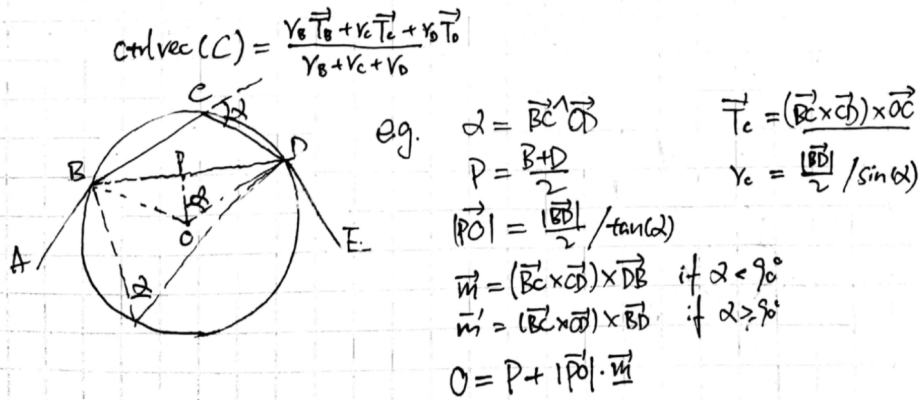 ctrlvec(C) = (r_B T⃗_B + r_C T⃗_C + r_D T⃗_D) / (r_B + r_C + r_D)
C
2
B
P
D
2
O
A
E
2
e.g.
2 = B⃗C^C⃗D
P = (B+D)/2
|P⃗O| = |B⃗D|/2 / tan(2)
m⃗ = (B⃗C×C⃗D)×D⃗B if 2 < 90°
m⃗' = (B⃗C×C⃗D)×B⃗D if 2 ≥ 90°
O = P + |P⃗O|·m⃗
T⃗_c = (B⃗C×C⃗D)×O⃗C
r_c = |B⃗D|/2 / sin(2)